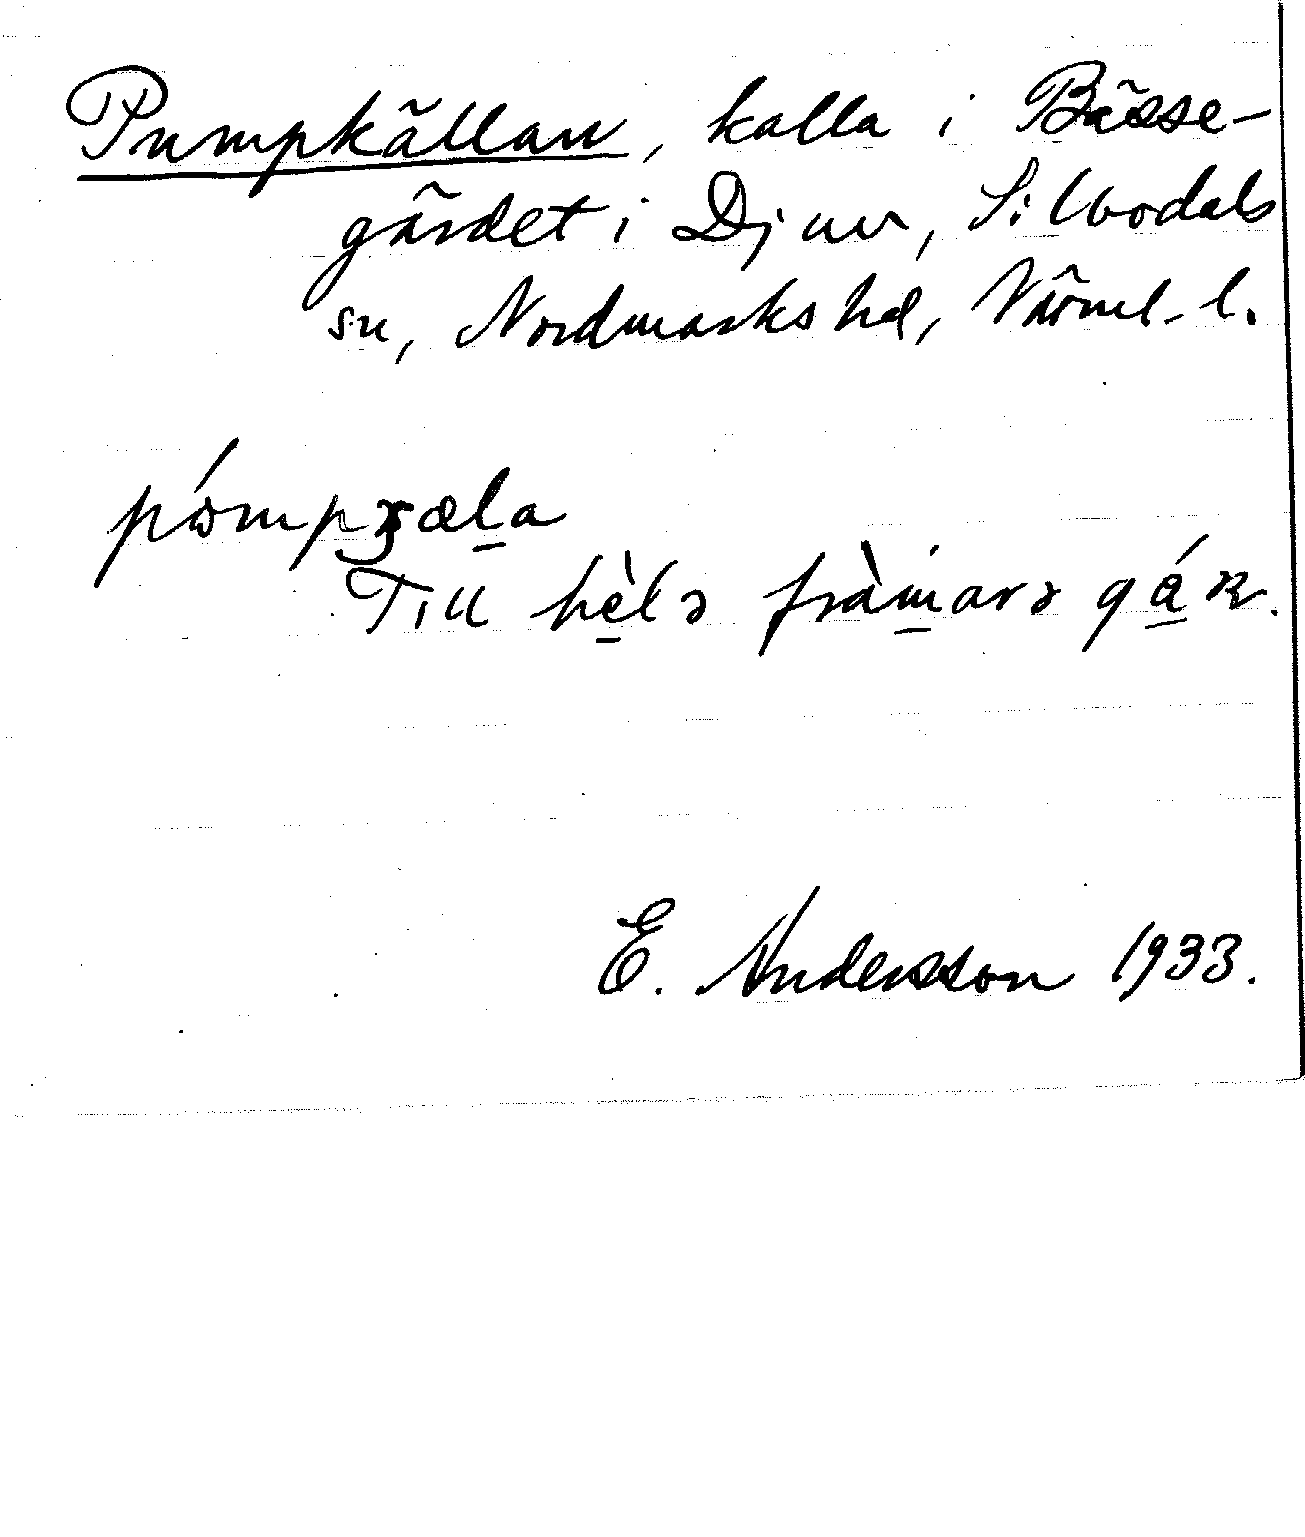 Pumpkällan, kalla i Bässe-
gärdet i Djuv, Silbodals
sn, Nordmarks hd, Värml. l.
Till hèlə fràmarə gák.
E. Andersson 1933.